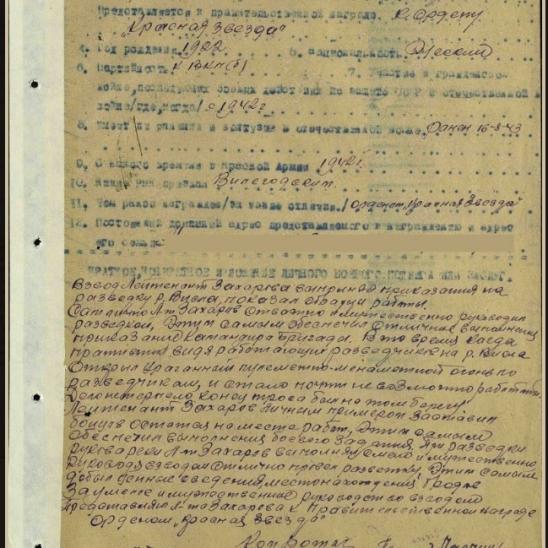 представляется к правительственной награде. к Ордену
"Красная Звезда"
4. Год рождения 1922 5. национальность Русский
6. Партийность 7. Участие в гражданской
войне, последующих боевых действиях по защите СССР и отечественной
войне/где, когда/ с 1942г
8. Имеет ли ранения и контузии в отечественной войне. Ранен 16-8-43
9. С какого времени в Красной Армии 1942г.
10. Каким РВК призван
11. Чем ранее награжден/за какие отличия./ Орденом "Красная Звезда"
12. Постоянный домашний адрес представляемого к награждению и адрес
его семьи:
КРАТКОЕ, КОНКРЕТНОЕ ИЗЛОЖЕНИЕ ЛИЧНОГО БОЕВОГО ПОДВИГА ИЛИ ЗАСЛУГ.
Взвод Лейтенант Захарова приказания на
разведку р. Висла, показал образцы работы.
Сам лично Л-т Захаров отважно и мужественно руководил
разведкой, Этим самым обеспечил отличное выполнение
приказание командира бригады. В то время когда
противник видя работающих разведчиков на р. Висла
Открыл ураганный пулеметно-минометной огонь по
разведчикам, и стало почти не возможно работать.
на том берегу
Лейтенант Захаров личным примером заставил
бойцов остаться на месте работ, Этим самым
обеспечил выполнение боевого задания. разведки
Л-т Захаров выполнял смело и мужественно
руководя взводом отлично провел разведку, Этим самым
добыл ценные сведения места нахождения
За умелое и мужественное руководство взводом
Представляю Л-та Захарова к Правительственной награде
Орденом "Красная Звезда"